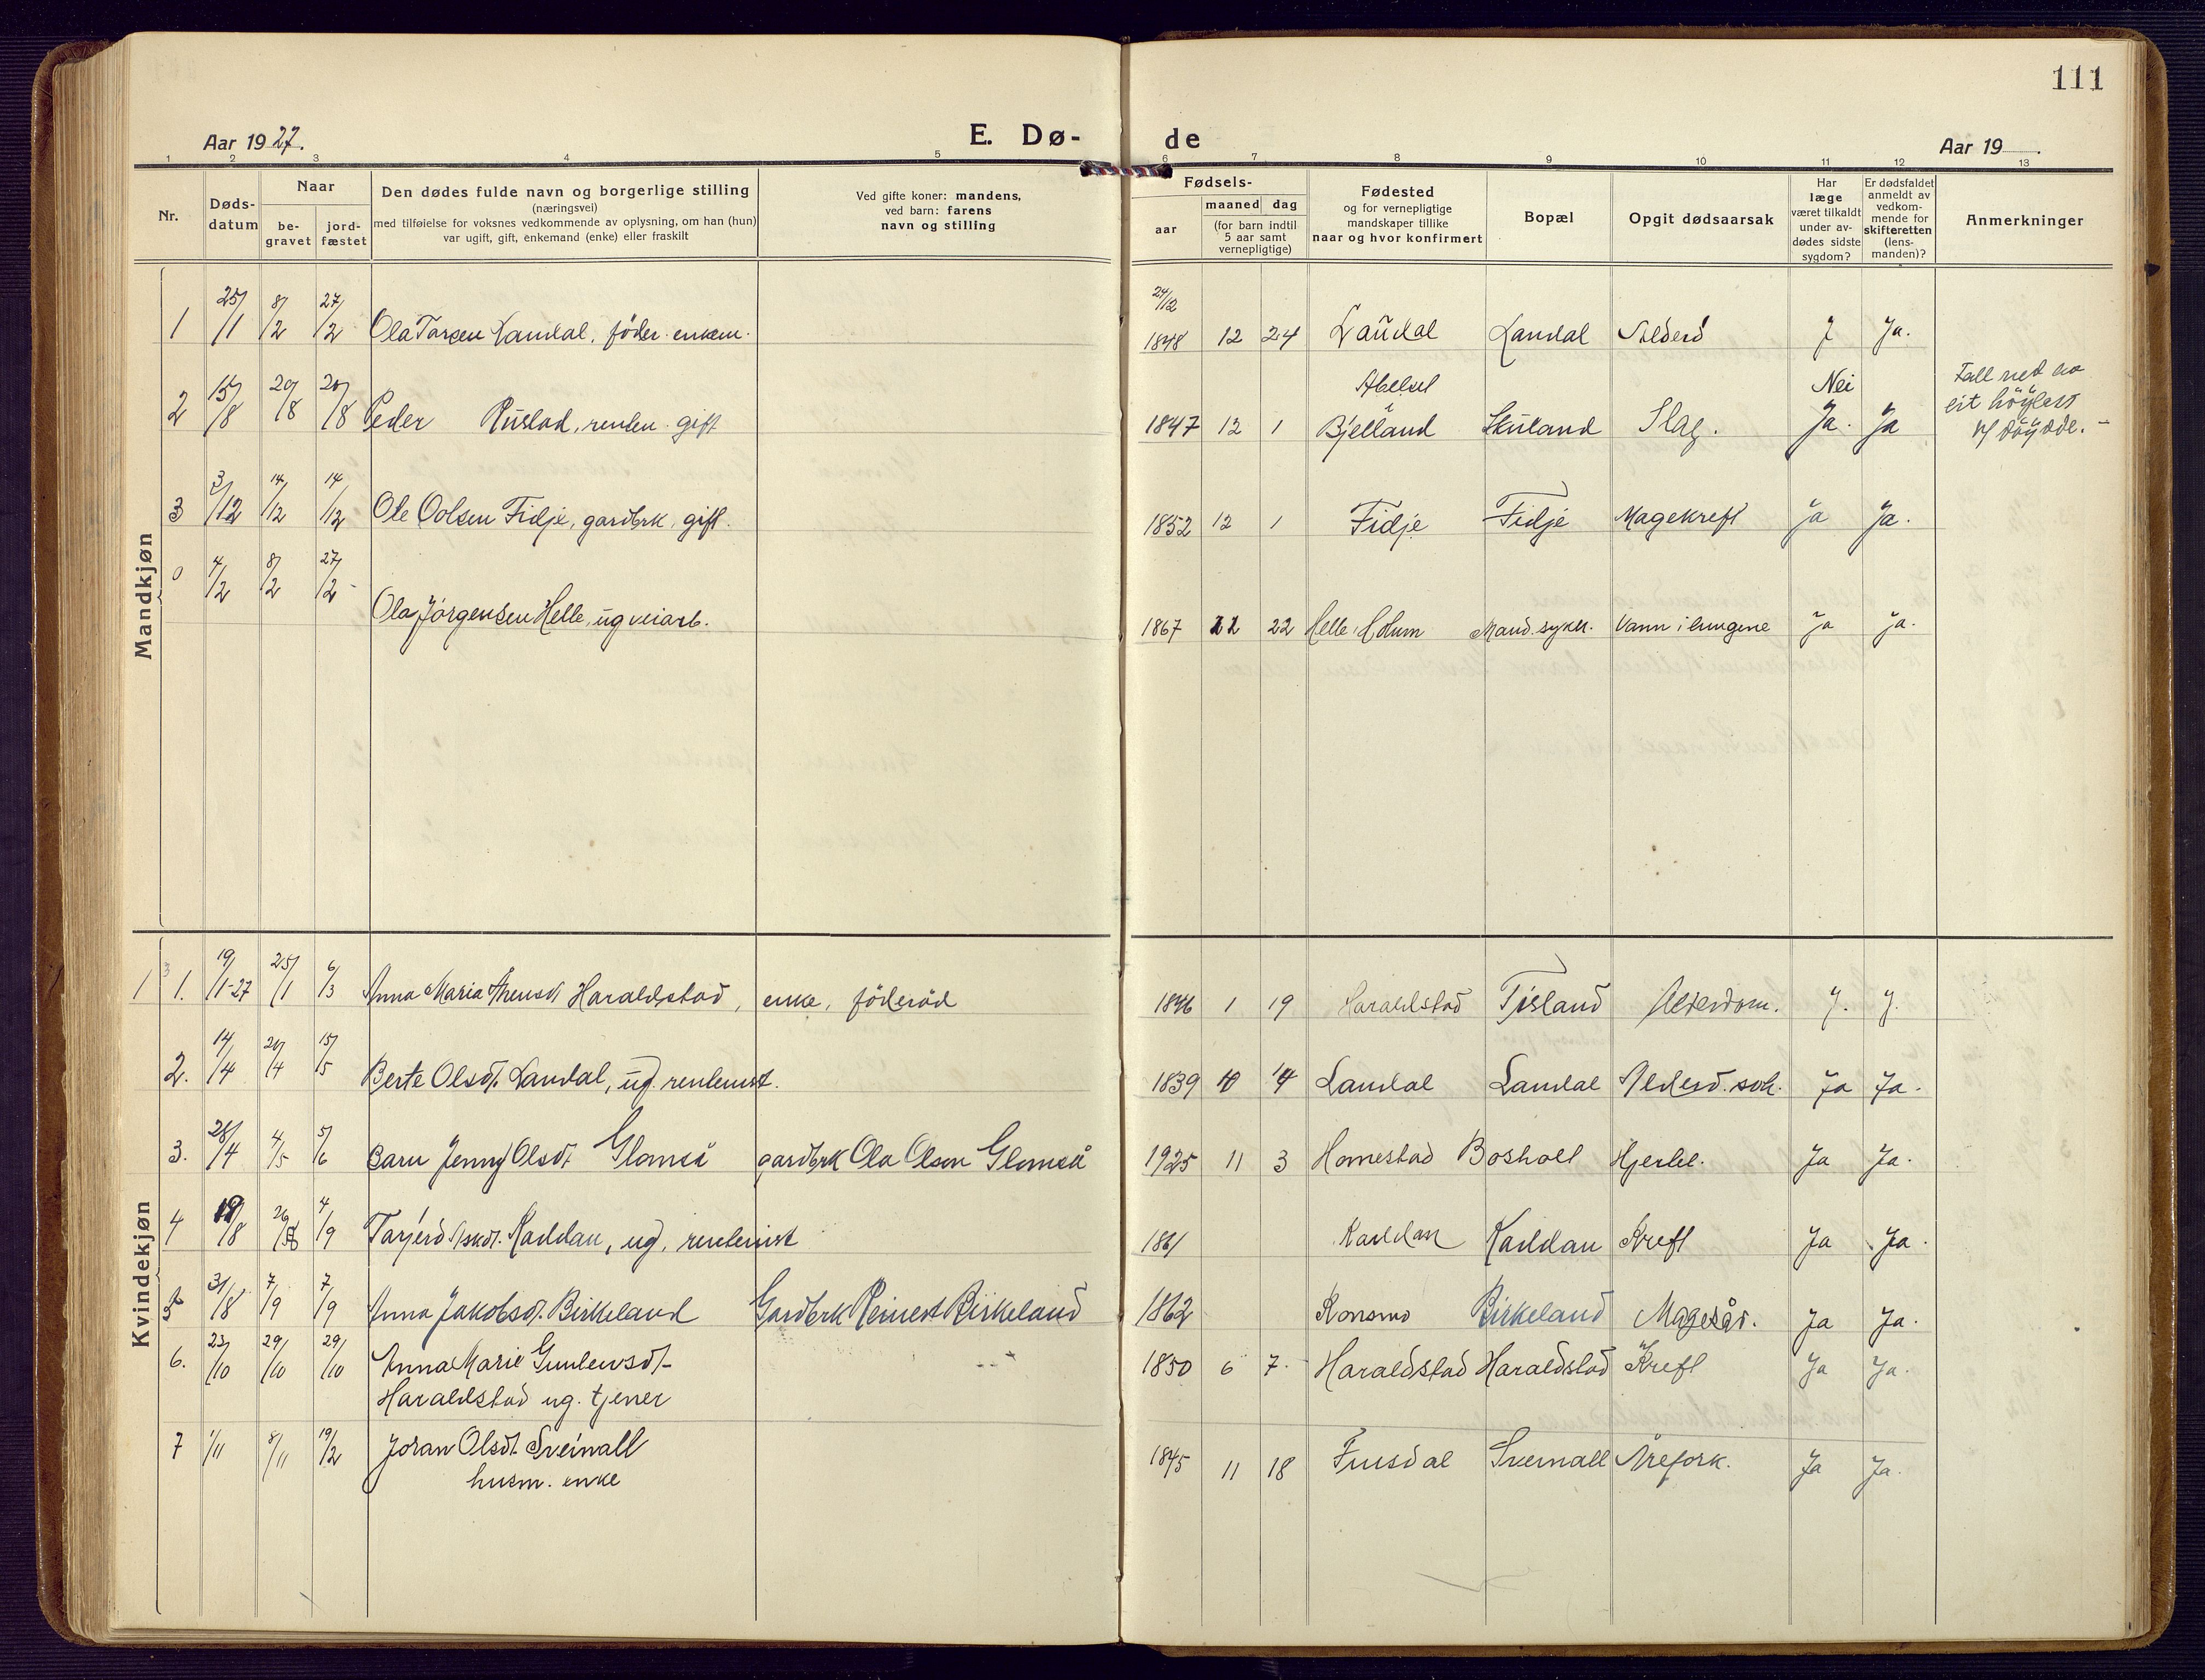 111
Aar 1927.
E. Dø-
de
Aar 19 .
1 2 3 4 5 6 7 8 9 10 11 12 13
Nr.
Døds-
datum
Naar
be-
gravet
jord-
fæstet
Den dødes fulde navn og borgerlige stilling
(næringsvei)
med tilføielse for voksnes vedkommende av oplysning, om han (hun)
var ugift, gift, enkemand (enke) eller fraskilt
Ved gifte koner: mandens,
ved barn: farens
navn og stilling
Fødsels-
aar
maaned dag
(for barn indtil
5 aar samt
vernepligtige)
Fødested
og for vernepligtige
mandskaper tillike
naar og hvor konfirmert
Bopæl
Opgit dødsaarsak
Har
læge
været tilkaldt
under av-
dødes sidste
sygdom?
Er dødsfaldet
anmeldt av
vedkom-
mende for
skifteretten
(lens-
manden)?
Anmerkninger
Mandkjøn
24/12
1 25/1 8/2 27/2 Ola Tarsen Laudal, føder. enkem. 1848 12 24 Laudal Laudal Alderd J Ja.
2 15/8 20/8 20/8 Peder Rüslad, renten. gift 1847 12 1 Bjelland Sküland Slag. Nei Ja. Ja
Fall ned av
eit höylass
og döydde. -
3 3/12 14/12 14/12 Ole Oolsen Fidje, gardbrk, gift. 1852 12 1 Fidje Fidje Magekreft Ja Ja.
0 4/2 8/2 27/2 -
Ola Jørgensen Helle, ug veiarb. 1867 11 22 Helle, Holum Mand. sykh. Vann i lungene Ja Ja.
Kvindekjøn
1 1. 19/1-27 25/1 6/3 Anna Maria Haraldstad, enke, föderåd 1846 1 19 Haraldstad Tisland Alderdom. J. J.
2. 14/4 20/4 15/5 Berte Olsdt. Laudal, ug. rentenist. 1839 10 14 Laudal Laudal Alderd. svk. Ja Ja.
3. 28/4 4/5 5/6 Barn Jenny Olsdt. Glomså gardbrk Ola Olsen Glomså 1925 11 3 Homestad Bosholl Hjertel. Ja Ja.
4 19/8 26/8 4/9 Tarjerd Askdt. Kaddan, ug, rentenist 1861 Kaddan Kaddan Kreft Ja Ja.
5 31/8 7/9 7/9 Anna Jakobsdt. Birkeland Gardbrk Reinert Birkeland 1862 Konsmo Birkeland Magesår. Ja Ja.
6. 23/10 29/10 29/10 Anna Marie Gunlevsdt- 1850 6 7. Haraldstad Haraldstad Kreft Ja Ja.
Haraldstad ug. tjener
7 1/11 8/11 19/2 Joran Olsdt. Sveinall 1845 11 18 Fuusdal Sveinall Årefork. Ja Ja.
husm. enke